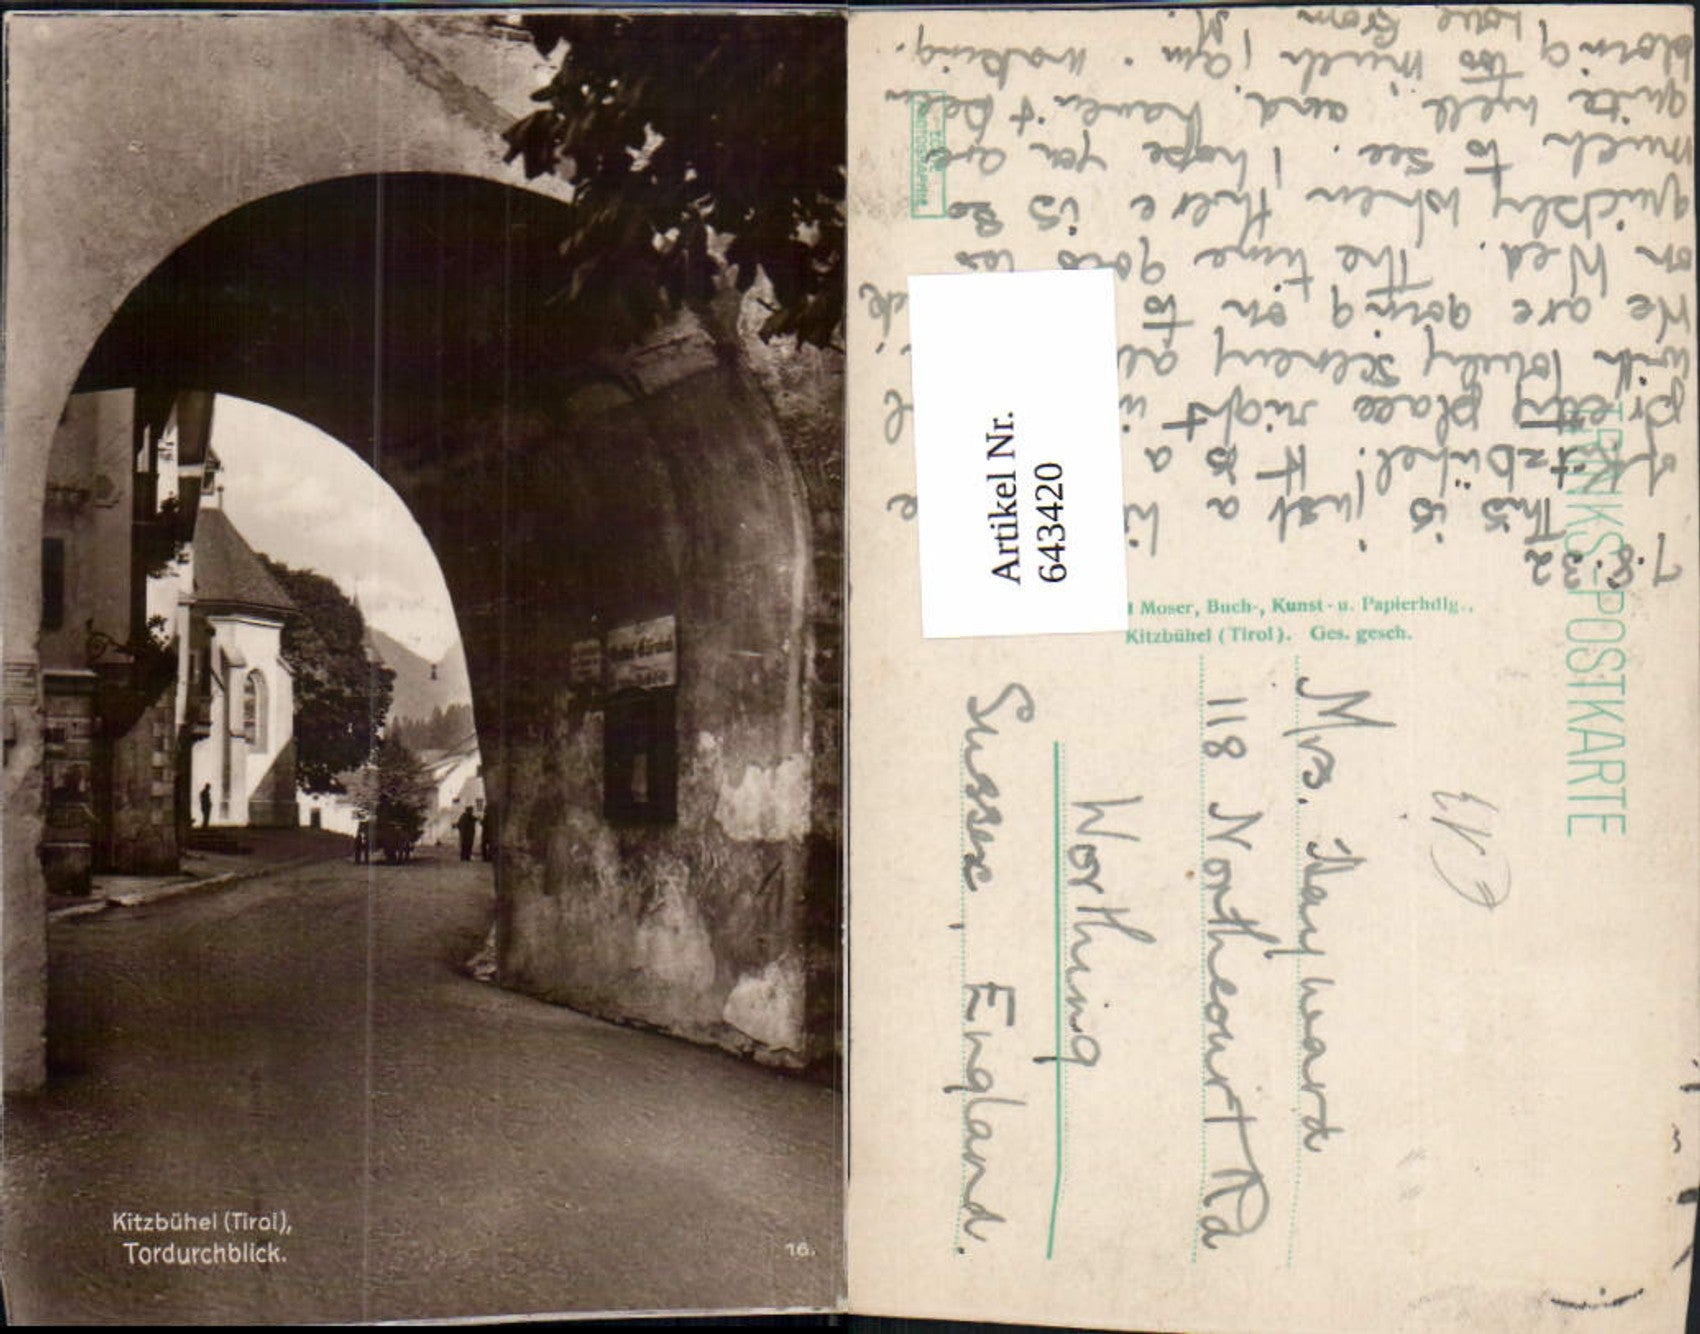 Kitzbühel (Tirol),
Tordurchblick.
16.
Artikel Nr.
643420
TRINKS-POSTKARTE
Moser, Buch-, Kunst- u. Papierhdlg.,
Kitzbühel (Tirol). Ges. gesch.
7.8.32
This is just a
Kitzbühel! It is a
pretty place right
with lovely scenery
We are going on to
on Wed. The time goes so
quickly when there is so
much to see. I hope you are
quite well and haven't been
doing too much. I am making.
Love from M.
Mrs. Hayward
118 Northcourt Rd
Worthing
Sussex, England.